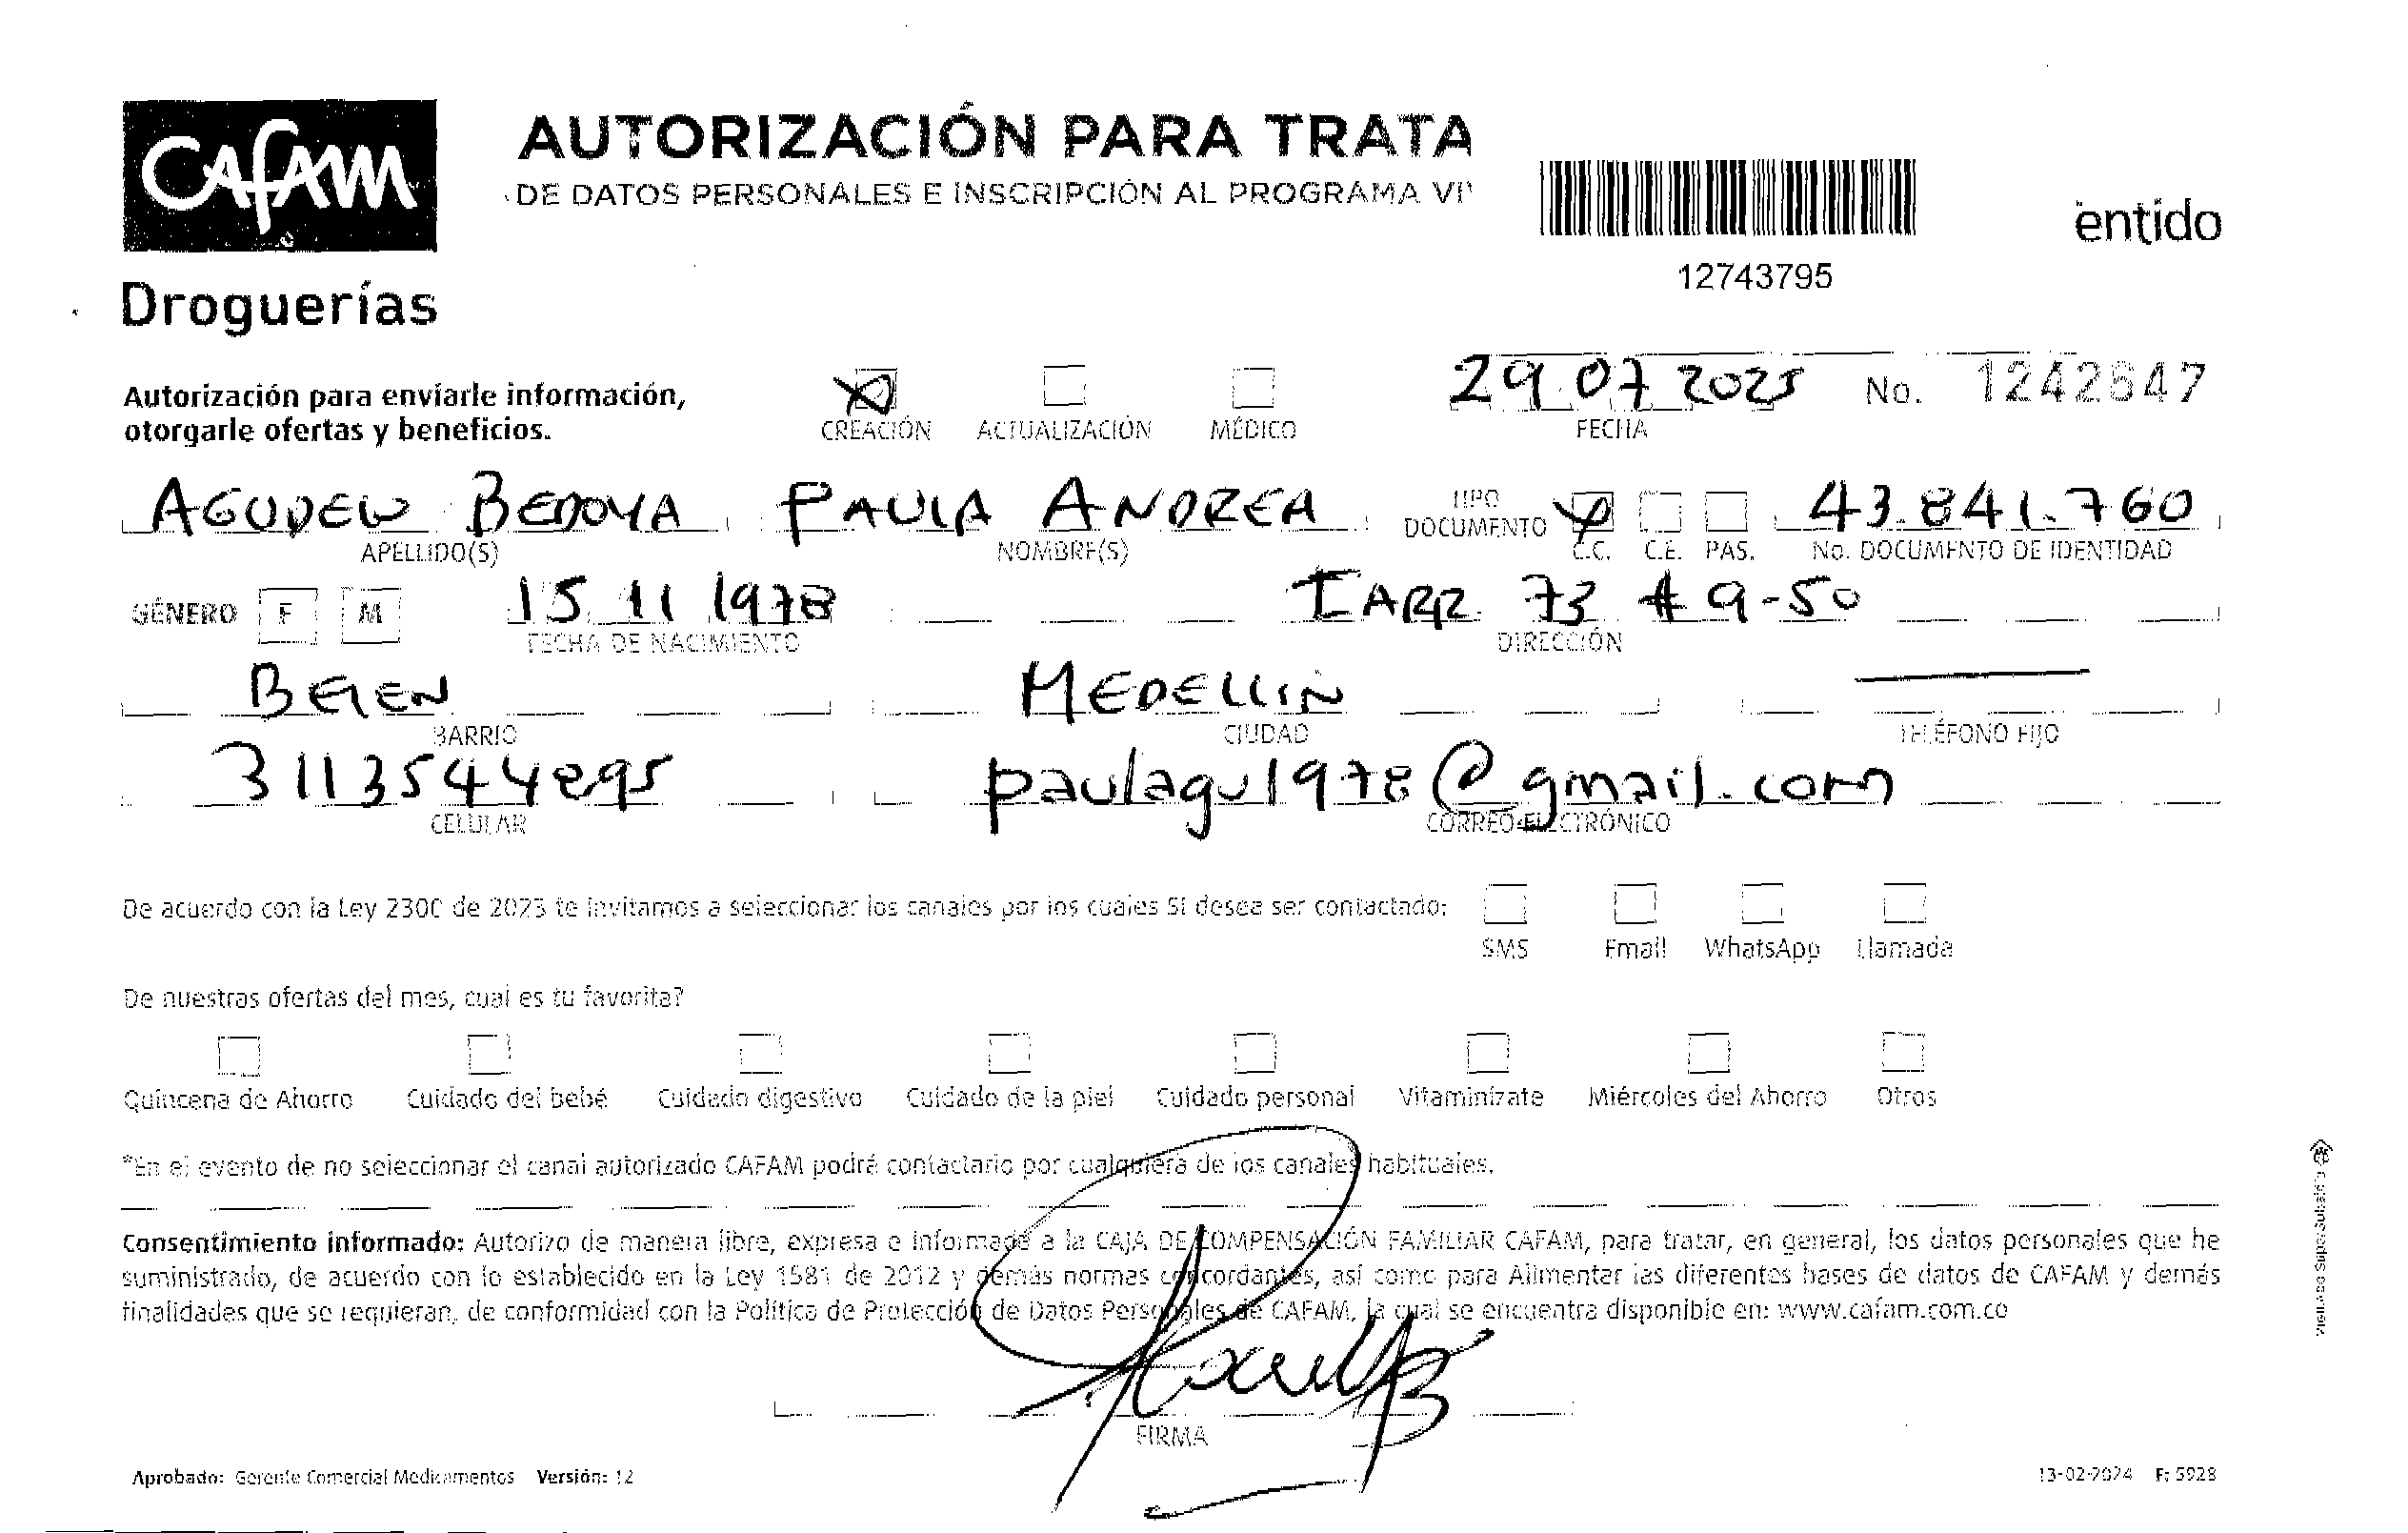 CAFAM
Droguerías
AUTORIZACIÓN PARA TRATA
DE DATOS PERSONALES E INSCRIPCIÓN AL PROGRAMA
12743795
entido
Autorización para enviarle información,
otorgarle ofertas y beneficios.
CREACIÓN ACTUALIZACIÓN MÉDICO
29 07 2025 No. 1242647
FECHA
AGUDELO BEDOYA PAULA ANDREA TIPO DOCUMENTO 43.841.760
APELLIDO(S) NOMBRE(S) C.C. C.E. PAS. No. DOCUMENTO DE IDENTIDAD
GÉNERO F M 15 11 1978 73 # 9-50
FECHA DE NACIMIENTO DIRECCIÓN
BELEN MEDELLIN
BARRIO CIUDAD TELÉFONO FIJO
3113544895 paulagu1978@gmail.com
CELULAR CORREO ELECTRÓNICO
De acuerdo con la Ley 2300 de 2023 te invitamos a seleccionar los canales por los cuales SI desea ser contactado:
SMS Email WhatsApp Llamada
De nuestras ofertas del mes, cual es tu favorita?
Quincena de Ahorro Cuidado del bebé Cuidado digestivo Cuidado de la piel Cuidado personal Vitaminízate Miércoles del Ahorro Otros
*En el evento de no seleccionar el canal autorizado CAFAM podrá contactarlo por cualquiera de los canales habituales.
Consentimiento informado: Autorizo de manera libre, expresa e informada a la CAJA DE COMPENSACIÓN FAMILIAR CAFAM, para tratar, en general, los datos personales que he
suministrado, de acuerdo con lo establecido en la Ley 1581 de 2012 y demás normas concordantes, así como para Alimentar las diferentes bases de datos de CAFAM y demás
finalidades que se requieran, de conformidad con la Política de Protección de Datos Personales de CAFAM, la cual se encuentra disponible en: www.cafam.com.co
FIRMA
Aprobado: Gerente Comercial Medicamentos Versión: 12
13-02-2024 F: 5928
VIGILADO Supersubsidio